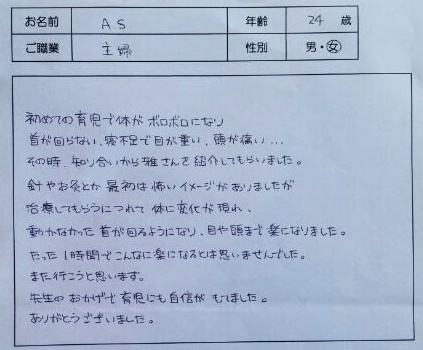 お名前 A.S 年齢 24 歳
ご職業 主婦 性別 男・女
初めての育児で体がボロボロになり
首が回らない、寝不足で目が重い、頭が痛い…
その時、知り合いから雅さんを紹介してもらいました。
針やお灸とか最初は怖いイメージがありましたが
治療してもらうにつれて体に変化が現れ、
動かなかった首が回るようになり、目や頭まで楽になりました。
たった1時間でこんなに楽になるとは思いませんでした。
また行こうと思います。
先生のおかげで育児にも自信がもてました。
ありがとうございました。